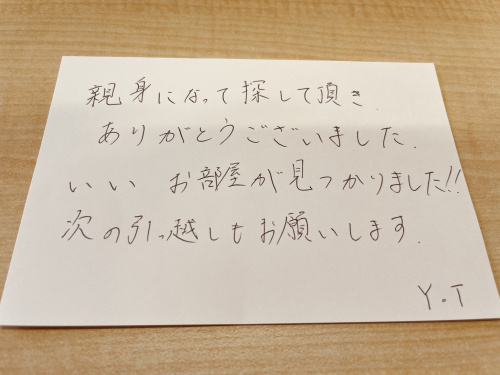 親身になって探して頂き.
ありがとうございました.
いい お部屋が見つかりました!!
次の引っ越しもお願いします.
Y.T